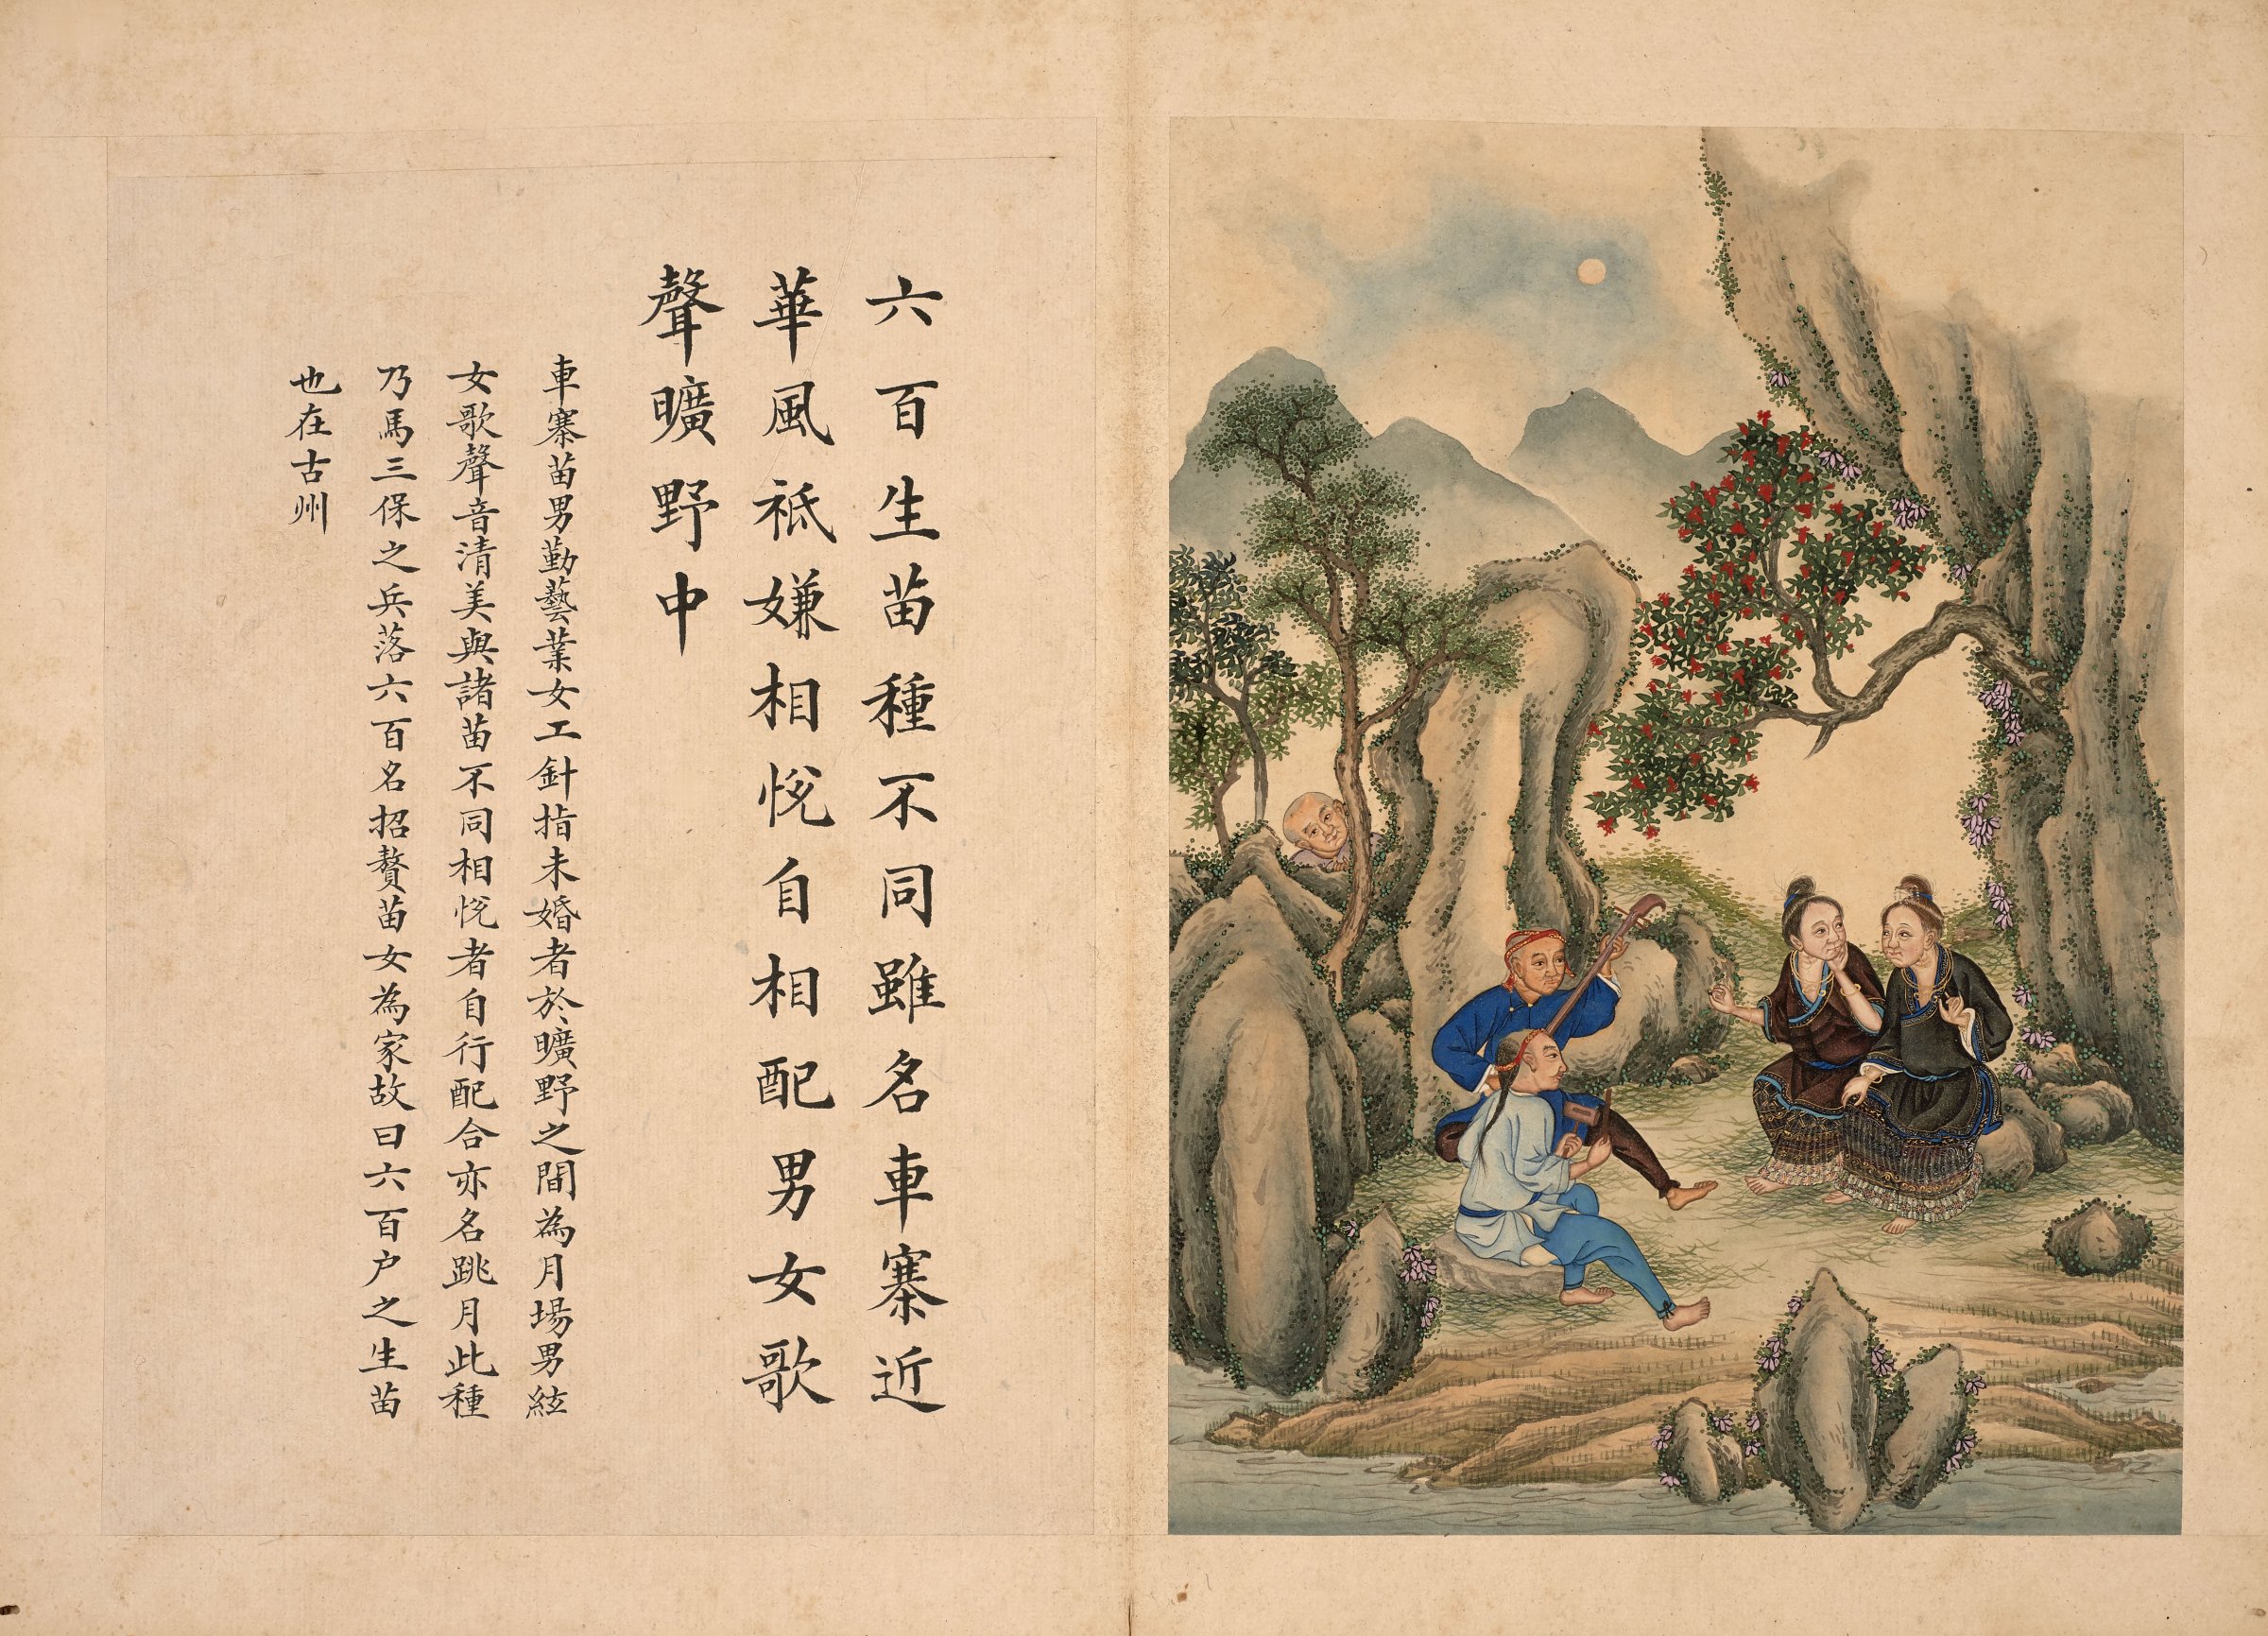 六百生苗種不同雖名車寨近
華風祗嫌相悅自相配男女歌
聲曠野中
車寨苗男勤藝業女工針指未婚者於曠野之間為月場男絃
女歌聲音清美與諸苗不同相悅者自行配合亦名跳月此種
乃馬三保之兵落六百名招贅苗女為家故曰六百户之生苗
也在古州